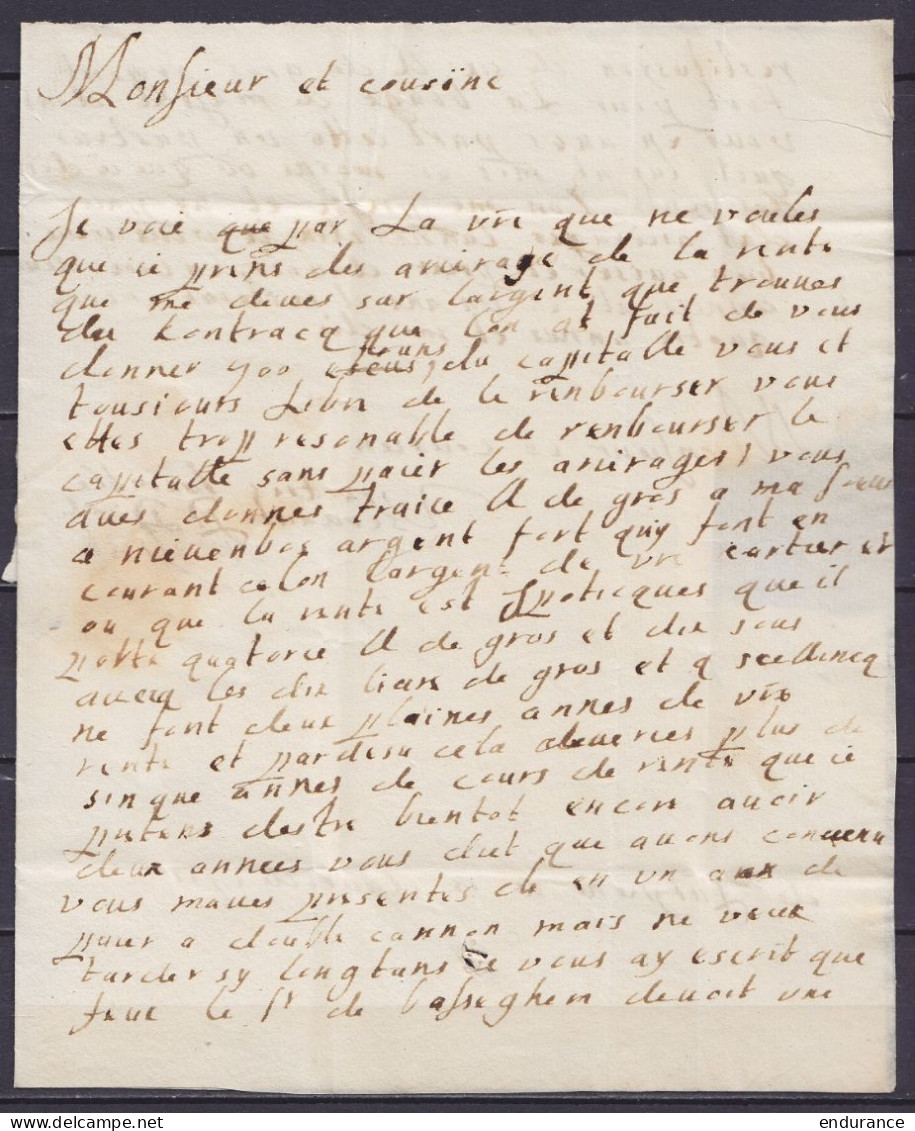 Monsieur et cousine
Je voie que par La vre que ne voules
que ie prens des arrirage de la rente
que me deves sur largent que trouves
du kontracq que lon at fait de vous
donner 900 frans du capitalle vous et
tousiours Libre de le renbourser vous
ettes trop resonable de renbourser le
capitalle sans paier les arirages vous
aves donnes traice de gros a ma
a nieuenbos argent fort quy font en
courant celon largent de vre cartier et
ou que la rente est ypoticques que il
porte quatorce de gros et dix sous
avecq les dix liars de gros et q scellincq
ne font deux plaines annes de vre
rente et pardesu cela deveries plus de
sinque annes de cours de rente que ie
pretens destre bientot encore avoir
deux annees vous diet que avons convenu
vous maves presentes de en un aux de
paier a double cannon mais ne veux
tarder sy longtans ie vous ay escrit que
feue le Sr de basseghem devoit une
endurance